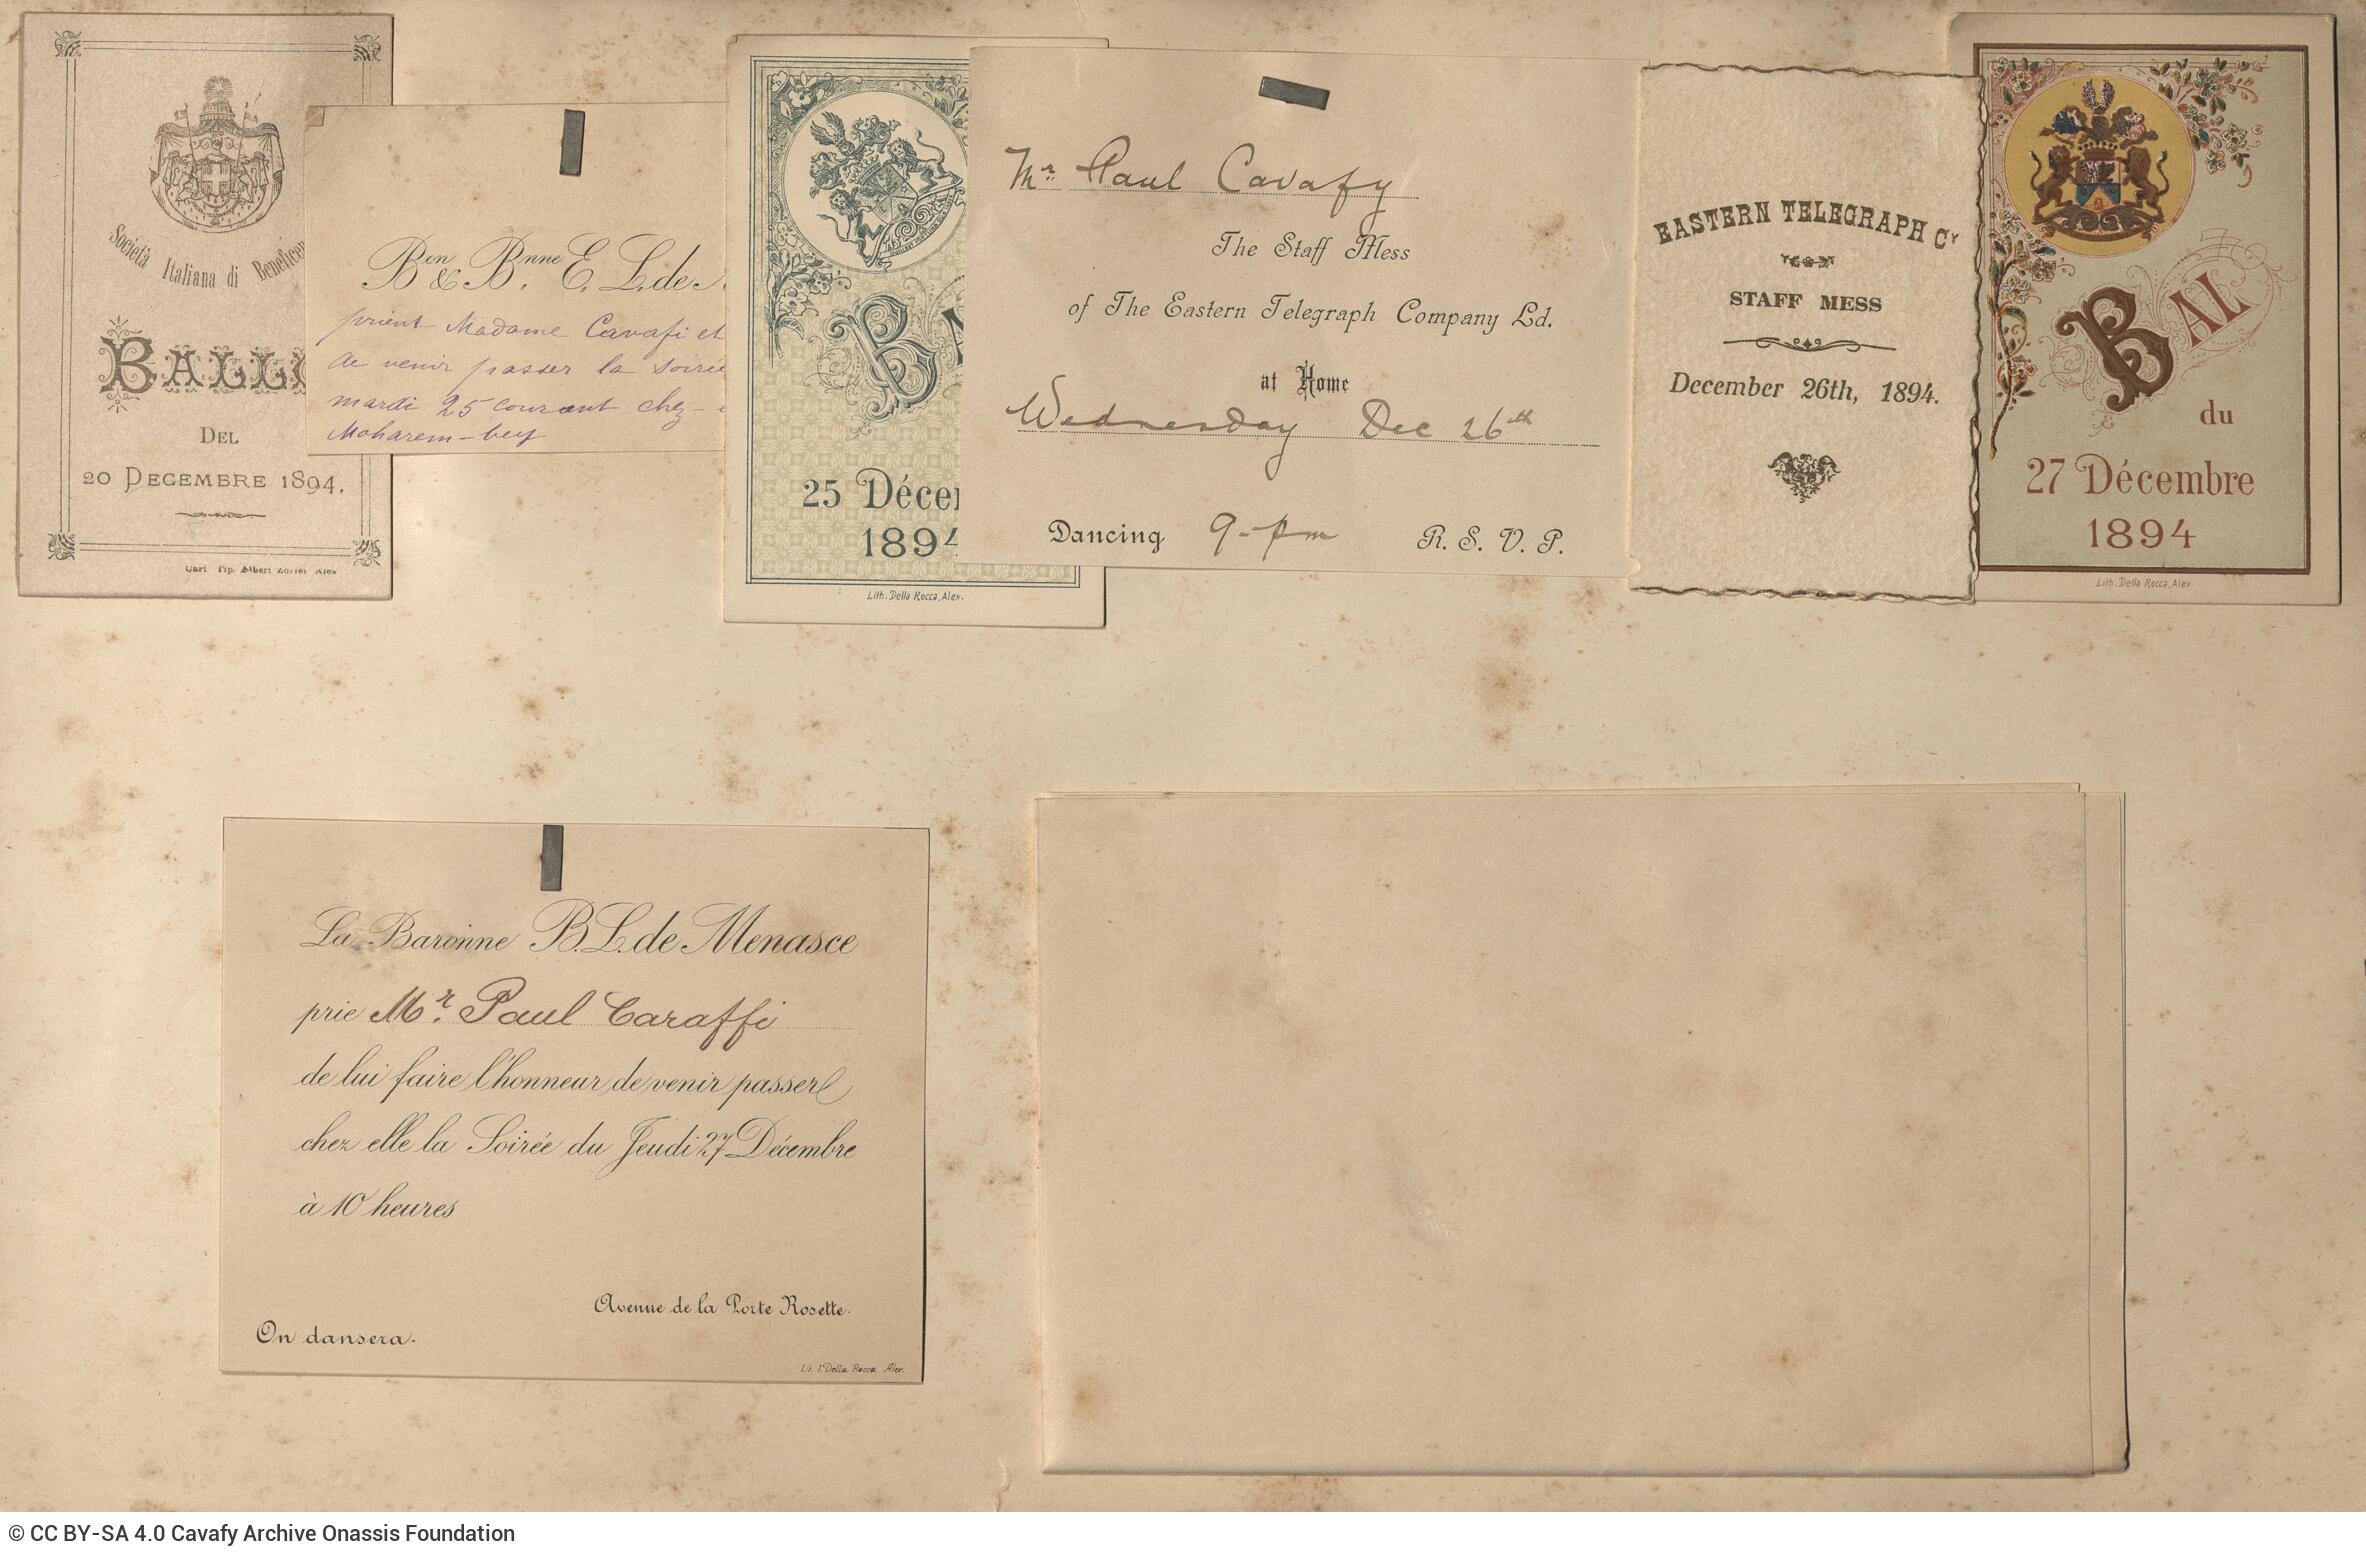 Società Italiana di
BALL
DEL
20 DECEMBRE 1894.
Cart. Tip. Albert Zorier Alex
Bon & Bnne E. L. de
prient Madame Cavafi et
de venir passer la soirée
mardi 25 courant chez
Moharem-bey
B
25 Décem
1894
Lith. Della Rocca, Alex.
Mr. Paul Cavafy
The Staff Mess
of The Eastern Telegraph Company Ld.
at Home
Wednesday Dec 26th
Dancing 9-pm R. S. V. P.
EASTERN TELEGRAPH Cy
STAFF MESS
December 26th, 1894.
BAL
du
27 Décembre
1894
Lith. Della Rocca, Alex.
La Baronne B. L. de Menasce
prie Mr. Paul Caraffi
de lui faire l'honneur de venir passer
chez elle la Soirée du Jeudi 27 Décembre
à 10 heures
Avenue de la Porte Rosette.
On dansera.
Lit. Della Rocca Alex.
© CC BY-SA 4.0 Cavafy Archive Onassis Foundation